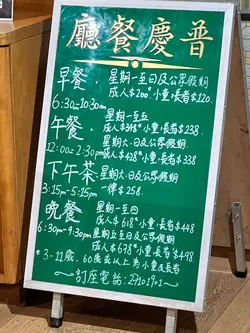 普慶餐廳
早餐 星期一至日及公眾假期
成人$200 小童,長者$120.
6:30-10:30am
午餐 星期一至五
成人$348 小童,長者$238.
星期六、日及公眾假期
12:00-2:30pm 成人$428 小童,長者$338
下午茶 星期六.日及公眾假期
3:15pm-5:15pm 一律$258.
晚餐 星期一至四
成人$618 小童,長者$448
6:30pm-9:30pm 星期五至日及公眾假期
成人$678 小童,長者$498.
*3-11歲.60歲或以上為小童及長者
~訂座電話:27102901~